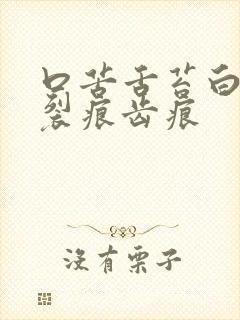 口苦舌苔白
裂痕齿痕
没有栗子